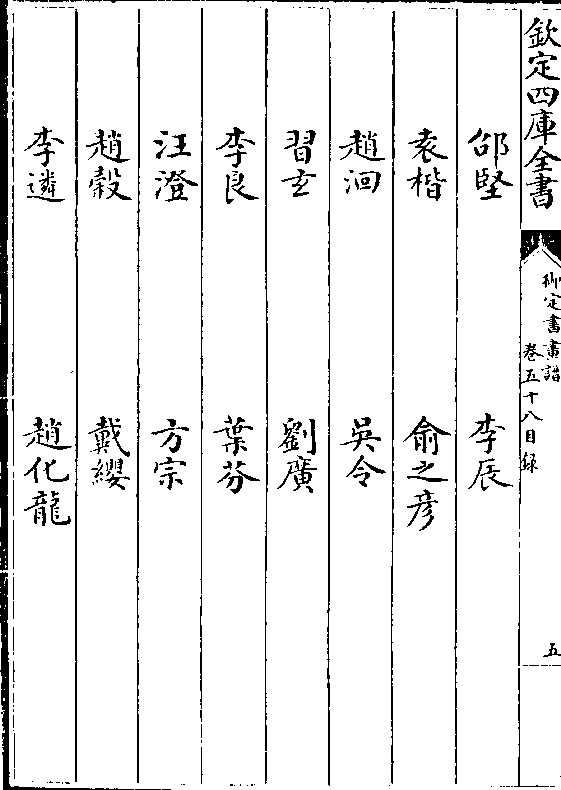 欽定四庫全書
御定書畫譜
卷五十八目録
五
邵堅
李辰
袁楷
俞之彦
趙泂
吳令
習玄
劉廣
李良
葉芬
汪澄
方宗
趙縠
戴纓
李遴
趙化龍